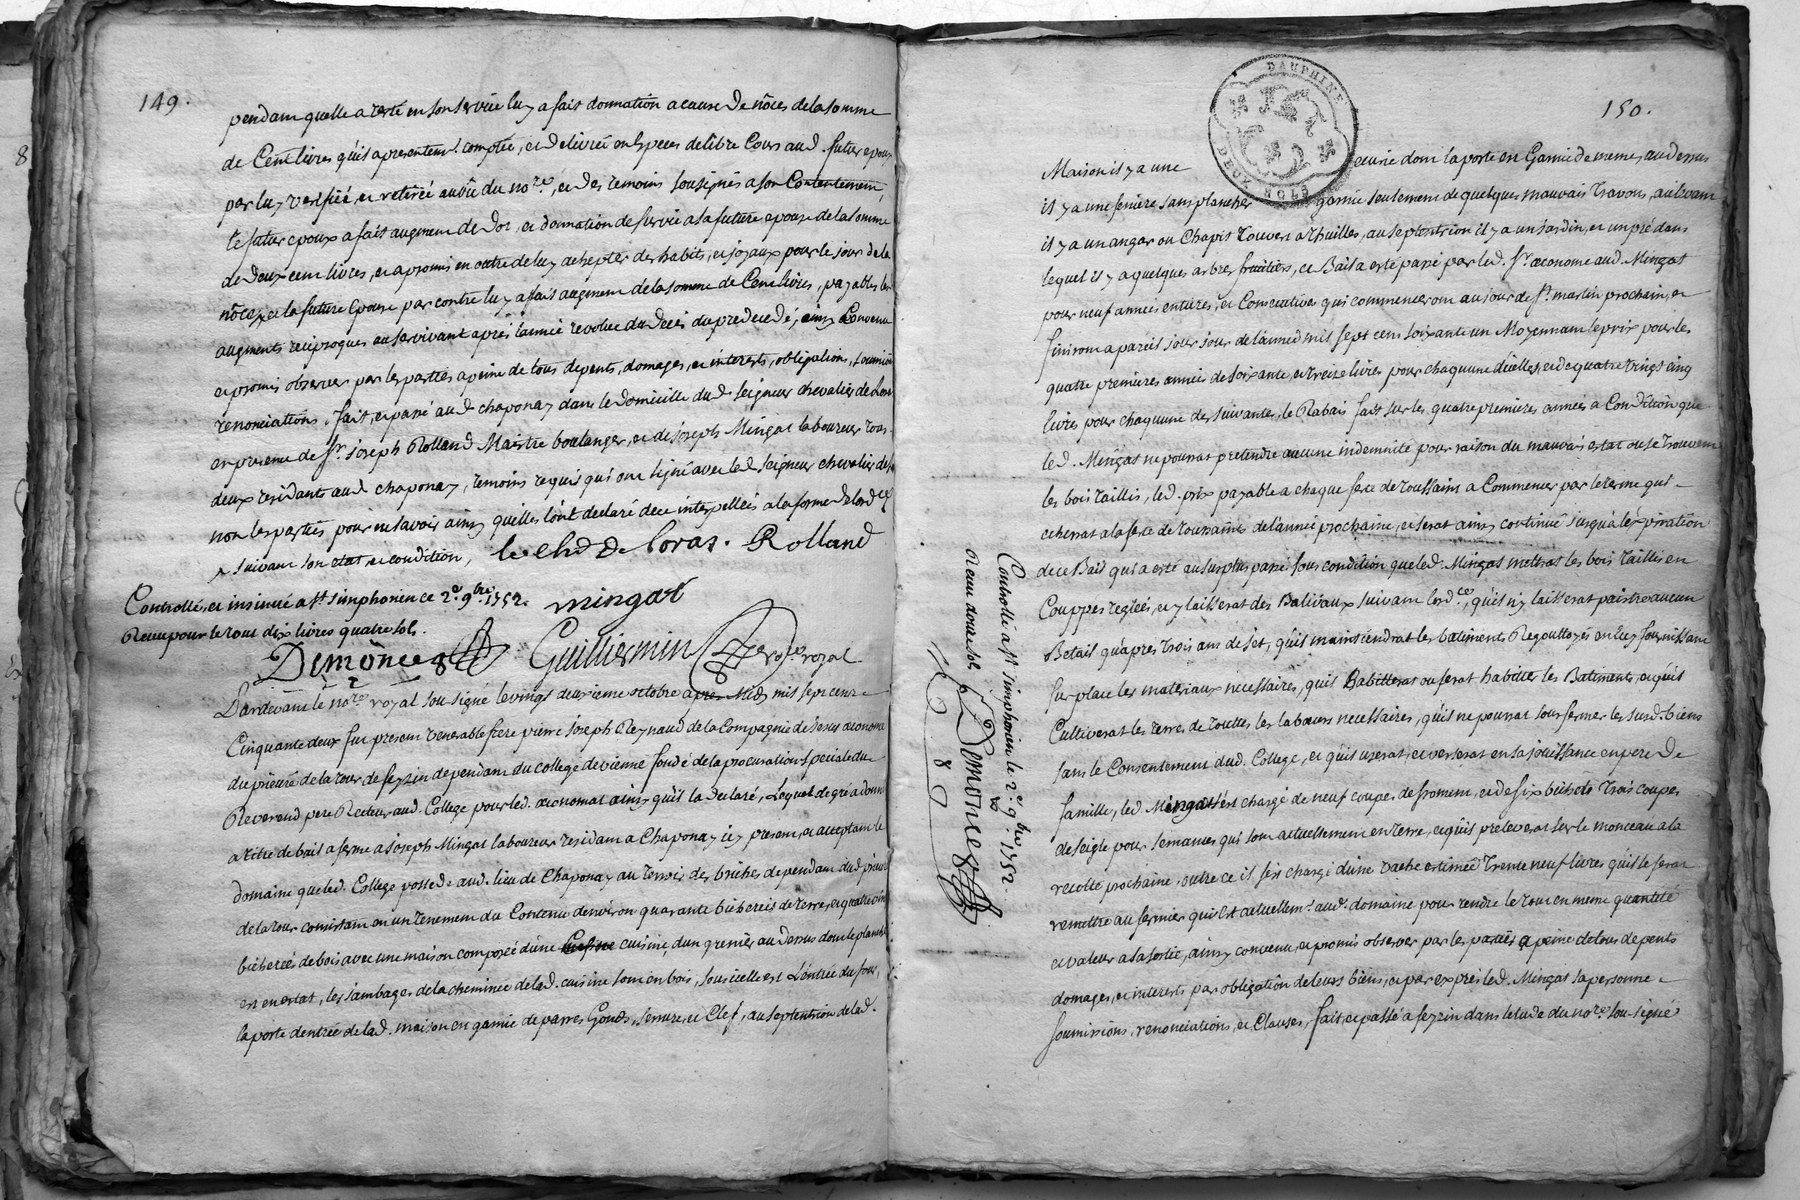 149.
pendant quelle a resté en son service luy a fait donnation a cause de nôces de la somme
de Cent livres qu'il a presentem.t comptée, et delivrée en Especes de libre Cours aud. futur epoux
par luy verifiée, et retirée au vû du no.re, et des temoins soussignés a son Contentement,
le futur epoux a fait augment de dot, et donnation de survie a sa future epouse de la somme
de deux cent livres, et a promis en outre de luy achepter des habits, et joyaux pour le jour de la
nôces, et la future Epouse par contre luy a fait augment de la somme de Cent livres, payables les
augments reciproques au survivant aprés l'année revolue du decés du predecedé, ainsy Convenu
et promis observer par les parties a peine de tous depents, domages, et interests, obligations, soumissions
renonciations, fait, et passé aud chaponay dans le domicille dud Seigneur chevalier de Loras
en presence de S.r joseph Rolland Maistre boulanger, et de joseph Mingat laboureur tous
deux residants aud chaponay, temoins requis qui ont signé avec led seigneur chevalier de
non les parties pour ne savoir ainsy quelles l'ont declaré de ce interpellées a la forme de lord.ce
suivant son etat, et condition, le ch.r De Loras. Rolland
Controllé, et insinué a S.t simphorien ce 2.e 9.bre 1752. mingat
Receu pour le tout dix livres quatre sols.
Demonceg Guilliermin no.re royal
Pardevant le no.re royal soussigné le vingt deuxieme octobre apres Midy mil sept cent
Cinquante deux fut present venerable frere pierre joseph Reynaud de la Compagnie de Jesus œconome
du prieuré de la tour de feyzin dependant du college de vienne fondé de la procuration speciale du
Reverend pere Recteur aud College pour led. œconomat ainsy qu'il la declaré, Lequel de gré a donné
a titre de bail a ferme a joseph Mingat laboureur residant a Chaponay icy present, et acceptant le
domaine que led. College possede aud. lieu de Chaponay au terroir des bruches dependant dud. prieuré
de la tour consistant en un tenement du Contenu d'environ quarante bicherées de terre, et quatre vingt
bicherées de bois avec une maison composée d'une cuisine, d'un grenier au dessus dont le planché
est en estat, les jambages de la cheminée de lad. cuisine sont en bois, sous icelle est L'entrée du four,
la porte dentrée de lad. maison en garnie de parres Gonds, serrure, et Clef, au septentrion de lad.
Controllé a S.t simphorien le 2.e 9.bre 1752.
Receu douze sols Demonceg
150.
DAUPHINE
DEUX SOLS
Maison il y a une ecurie dont la porte en Garnie de memes, au dessus
il y a une feniere sans plancher garnie seulement de quelques mauvais travons, au levant
il y a un angar ou Chapit Couvert a thuilles, au septentrion il y a un jardin, et un pré dans
lequel il y a quelques arbres fruitiers, ce Bail a esté passé par led. S.r œconome aud. Mingat
pour neuf années entieres, et Consecutives qui commenceront au jour de S.t martin prochain, et
finiront a pareil jour jour de l'année mil sept cent soixante un Moyennant le prix pour les
quatre premieres année de soixante, et treize livres pour chaqueune d'icelles, et de quatre vingt cinq
livres pour chaqueune des suivantes, le Rabais fait sur les quatre premieres années a Condition que
led. Mingat ne pourrat pretendre aucune indemnité pour raison du mauvais estat ou se trouvent
les bois taillis, led. prix payable a chaque feste de toussaint a Commencer par le terme qui
echerrat a la feste de toussaint de l'année prochaine, et serat ainsy continué jusqu'a l'expiration
de ce Bail qui a esté au surplus passé sous condition que led. Mingat mettrat les bois taillis en
Couppes reglées, et y laisserat des Balivaux suivant lord.ce, qu'il n'y laisserat paistre aucun
Betail qu'aprés trois ans de jet, qu'il maintiendrat les batiments Regouttoyés en luy fournissant
sur place les materiaux necessaires, qu'il habitterat ou ferat habitter les Batiments, et qu'il
Cultiverat les terres de touttes les labœurs necessaires, qu'il ne pourrat sousfermer les susd. biens
sans le Consentement dud. College, et qu'il userat, et verserat en sa jouissance en pere de
famille, led. Mingat s'est chargé de neuf coupes de froment, et de six bichets trois coupes
de seigle pour semances qui sont actuellement en terre, et qu'il preleverat sur le monceau a la
recolte prochaine, outre ce il s'est chargé d'une vache estimée trente neuf livres qu'il le ferat
remettre au fermier qui est actuellem.t aud. domaine pour rendre le tout en meme quantité
et valeur a sa sortie, ainsy convenu, et promis observer par les parties a peine de tous depents
domages, et interests par obligation de leurs biens, et par exprés led. Mingat sa personne
soumissions, renonciations, et Clauses, fait, et passé a feyzin dans letude du no.re soussigné